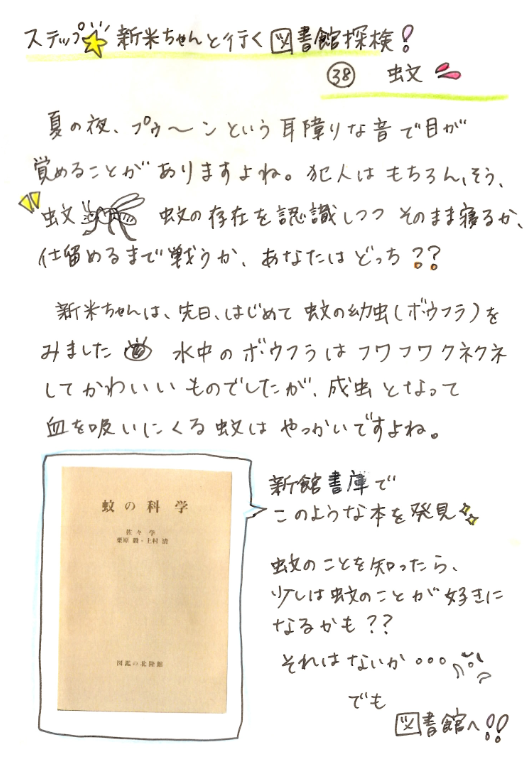 ステップ 新米ちゃんと行く 図書館探検!
㊳ 蚊
夏の夜、プゥ〜ンという耳障りな音で目が
覚めることがありますよね。犯人はもちろん、そう、
蚊 蚊の存在を認識しつつ そのまま寝るか、
仕留めるまで戦うか、あなたはどっち??
新米ちゃんは、先日、はじめて 蚊の幼虫(ボウフラ)を
みました 水中のボウフラはフワフワクネクネ
してかわいいものでしたが、成虫となって
血を吸いにくる蚊は やっかいですよね。
蚊の科学
佐々学
栗原毅・上村清
図鑑の北隆館
新館書庫で
このような本を発見
蚊のことを知ったら、
少しは蚊のことが好きに
なるかも??
それはないか・・・
でも
図書館へ!!